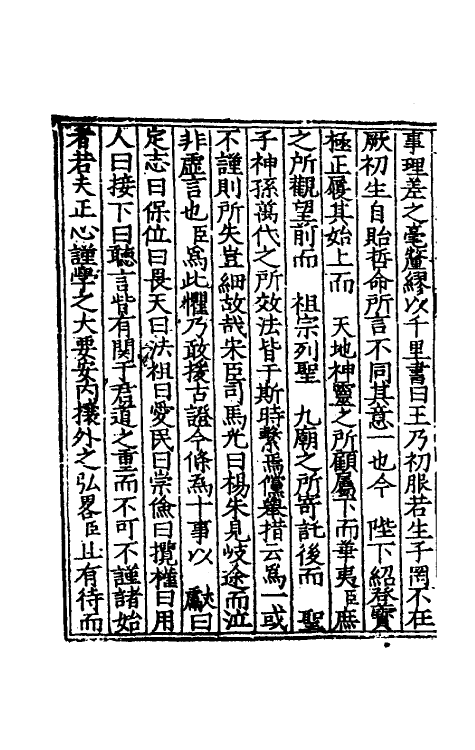 事理差之毫釐繆以千里書曰王乃初服若生子罔不在
厥初生自貽哲命所言不同其意一也今　陛下紹登寳
極正履其始上而　天地神靈之所顧屬下而華夷臣庶
之所觀望前而　祖宗列聖　九廟之所寄託後而　聖
子神孫萬代之所效法皆于斯時繫焉儻舉措云爲一或
不謹則所失豈細故哉宋臣司馬光曰楊朱見岐途而泣
非虛言也臣爲此懼乃敢援古證今條爲十事以　獻曰
定志曰保位曰畏天曰法祖曰愛民曰崇儉曰攬權曰用
人曰接下曰聽言皆有関于君道之重而不可不謹諸始
者若夫正心謹學之大要安內攘外之弘畧臣且有待而